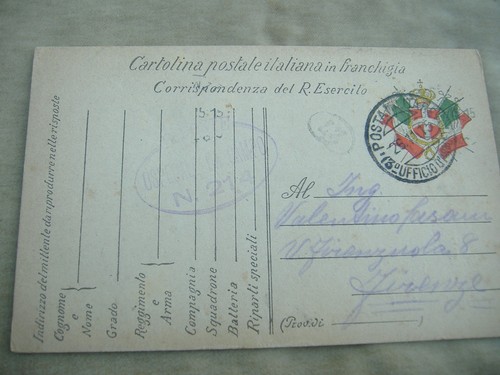 Cartolina postale italiana in franchigia
Corrispondenza del R. Esercito
Indirizzo del mittente da riprodurre nelle risposte
Cognome
e
Nome
Grado
Reggimento
e
Arma
Compagnia
Squadrone
Batteria
Riparti speciali
N. 213
POSTA
UFFICIO
Al Ing.
Valentino
V. Firenzuola 8
Firenze
(Prov. di